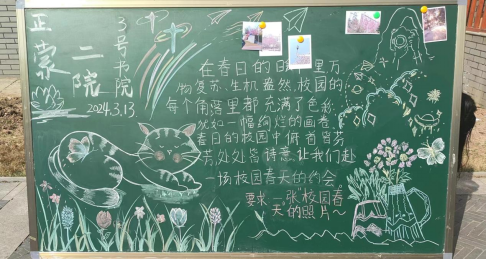 正蒙二院
3号书院
2024.3.13
在春日的日子里万
物复苏、生机盎然,校园的
每个角落里都充满了色彩
犹如一幅绚烂的画卷
春日的校园中俯首皆芬
芳,处处皆诗意,让我们赴
一场校园春天的约会
要求:一张"校园春
天的照片~